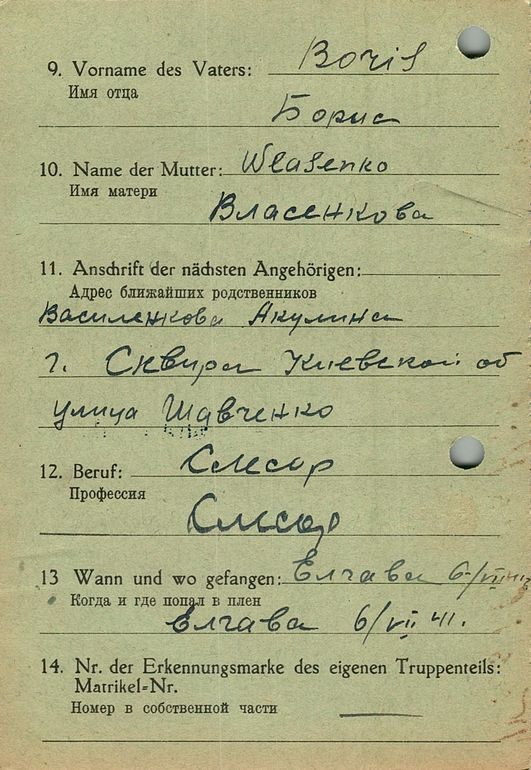 9. Vorname des Vaters: Boris
Имя отца
Борис
10. Name der Mutter: Wlasenko
Имя матери
Власенкова
11. Anschrift der nächsten Angehörigen:
Адрес ближайших родственников
Василенкова Акулина
г. Сквира Киевской об
улица Шавченко
12. Beruf: Слесар
Профессия
Слесар
13 Wann und wo gefangen: Елгава 6/VII 41
Когда и где попал в плен
Елгава 6/VII 41.
14. Nr. der Erkennungsmarke des eigenen Truppenteils:
Matrikel-Nr.
Номер в собственной части